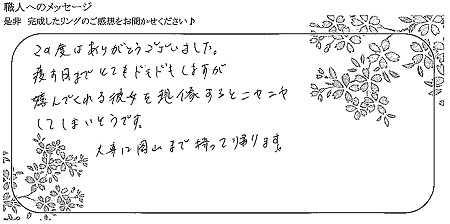 職人へのメッセージ
是非 完成したリングのご感想をお聞かせください♪
この度はありがとうございました。
渡す日までとてもドキドキしますが
喜んでくれる彼女を想像するとニヤニヤ
してしまいそうです。
大事に岡山まで持って帰ります。